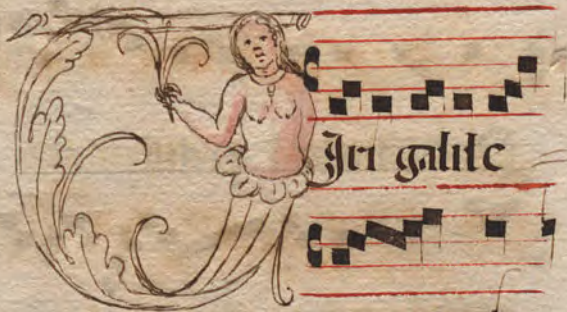 Viri galile